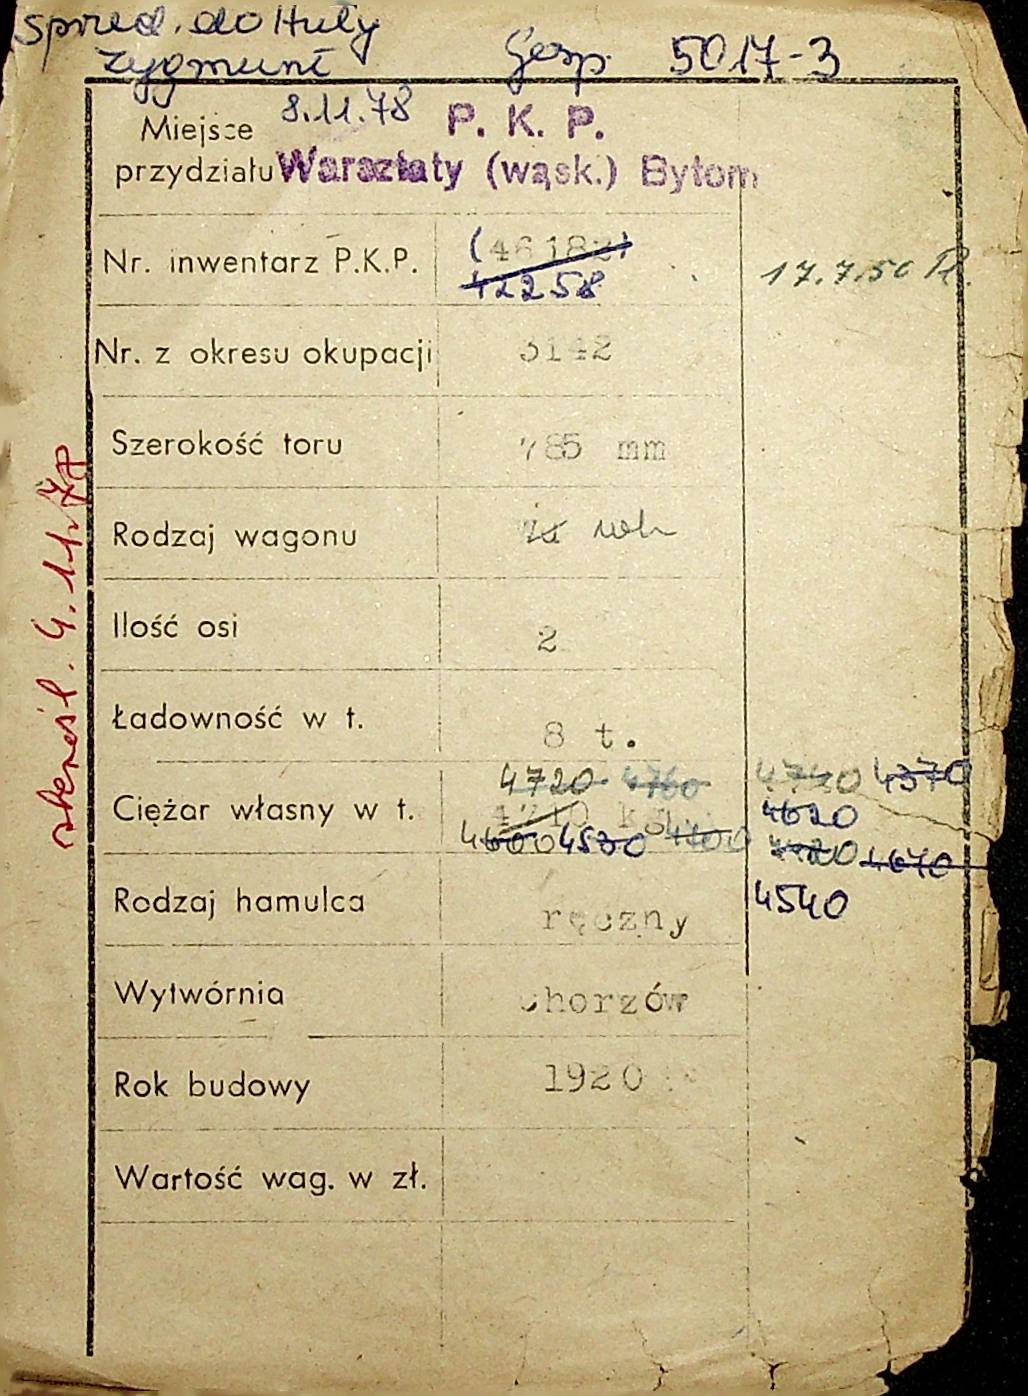 Sprzed. do Huty
Zygmunt Gosp. 5017-3
8.11.78 P. K. P.
Miejsce
przydziału Warsztaty (wąsk.) Bytom
Nr. inwentarz P.K.P. (46182)
42258 17.7.50
Nr. z okresu okupacji 3142
Szerokość toru 785 mm
Rodzaj wagonu wh
Ilość osi 2
Ładowność w t. 8 t.
4720 4760 4740 4370
Ciężar własny w t. 4710 kg 4620
4600 4530 4720 4670
Rodzaj hamulca ręczny 4540
Wytwórnia Chorzów
Rok budowy 1920
Wartość wag. w zł.
skreśl.